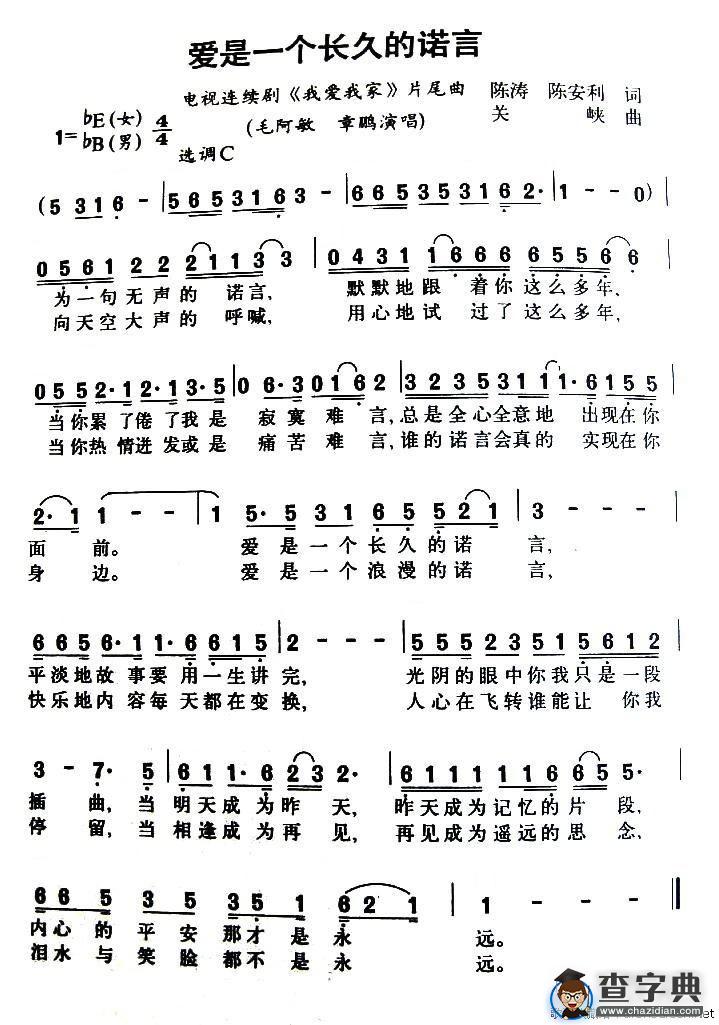 爱是一个长久的诺言
电视连续剧《我爱我家》片尾曲 陈涛 陈安利 词
(毛阿敏 章鹏演唱) 关峡 曲
1= ♭E(女) ♭B(男) 4/4
选调C
(5 3 1 6 - | 5 6 5 3 1 6 3 - | 6 6 5 3 5 3 1 6 2· | 1 - - 0) |
0 5 6 1 2 2 2 1 1 3 3 | 0 4 3 1 1 6 6 6 6 5 5 6 6 |
为一句无声的 诺言, 默默地跟 着你这么多年,
向天空大声的 呼喊, 用心地试 过了这么多年,
0 5 5 2· 1 2· 1 3· 5 | 0 6· 3 0 1 6 2 | 3 2 3 5 3 1 1 1· 6 1 5 5 |
当你累了倦了我是 寂寞 难言,总是全心全意地 出现在你
当你热情进发或是 痛苦 难言,谁的诺言会真的 实现在你
2· 1 1 - - | 1 5· 5 3 1 6 5 5 2 1 | 3 - - - |
面 前。 爱是一个长久的诺 言,
身 边。 爱是一个浪漫的诺 言,
6 6 5 6· 1 1· 6 6 1 5 | 2 - - - | 5 5 5 2 3 5 1 5 6 1 2 |
平淡地故事要用一生讲 完, 光阴的眼中你我只是一段
快乐地内容每天都在变 换, 人心在飞转谁能让 你我
3 - 7· 5 | 6 1 1· 6 2 3 2· | 6 1 1 1 1· 6 6 5 5· |
插 曲, 当 明天成为昨 天, 昨天成为记忆的片 段,
停 留, 当 相逢成为再 见, 再见成为遥远的思 念,
6 6 5 3 5 3 5 1 6 2 1 | 1 - - - ‖
内心的 平安那才是永 远。
泪水与 笑脸都不是永 远。
查字典
www.chazidian.com